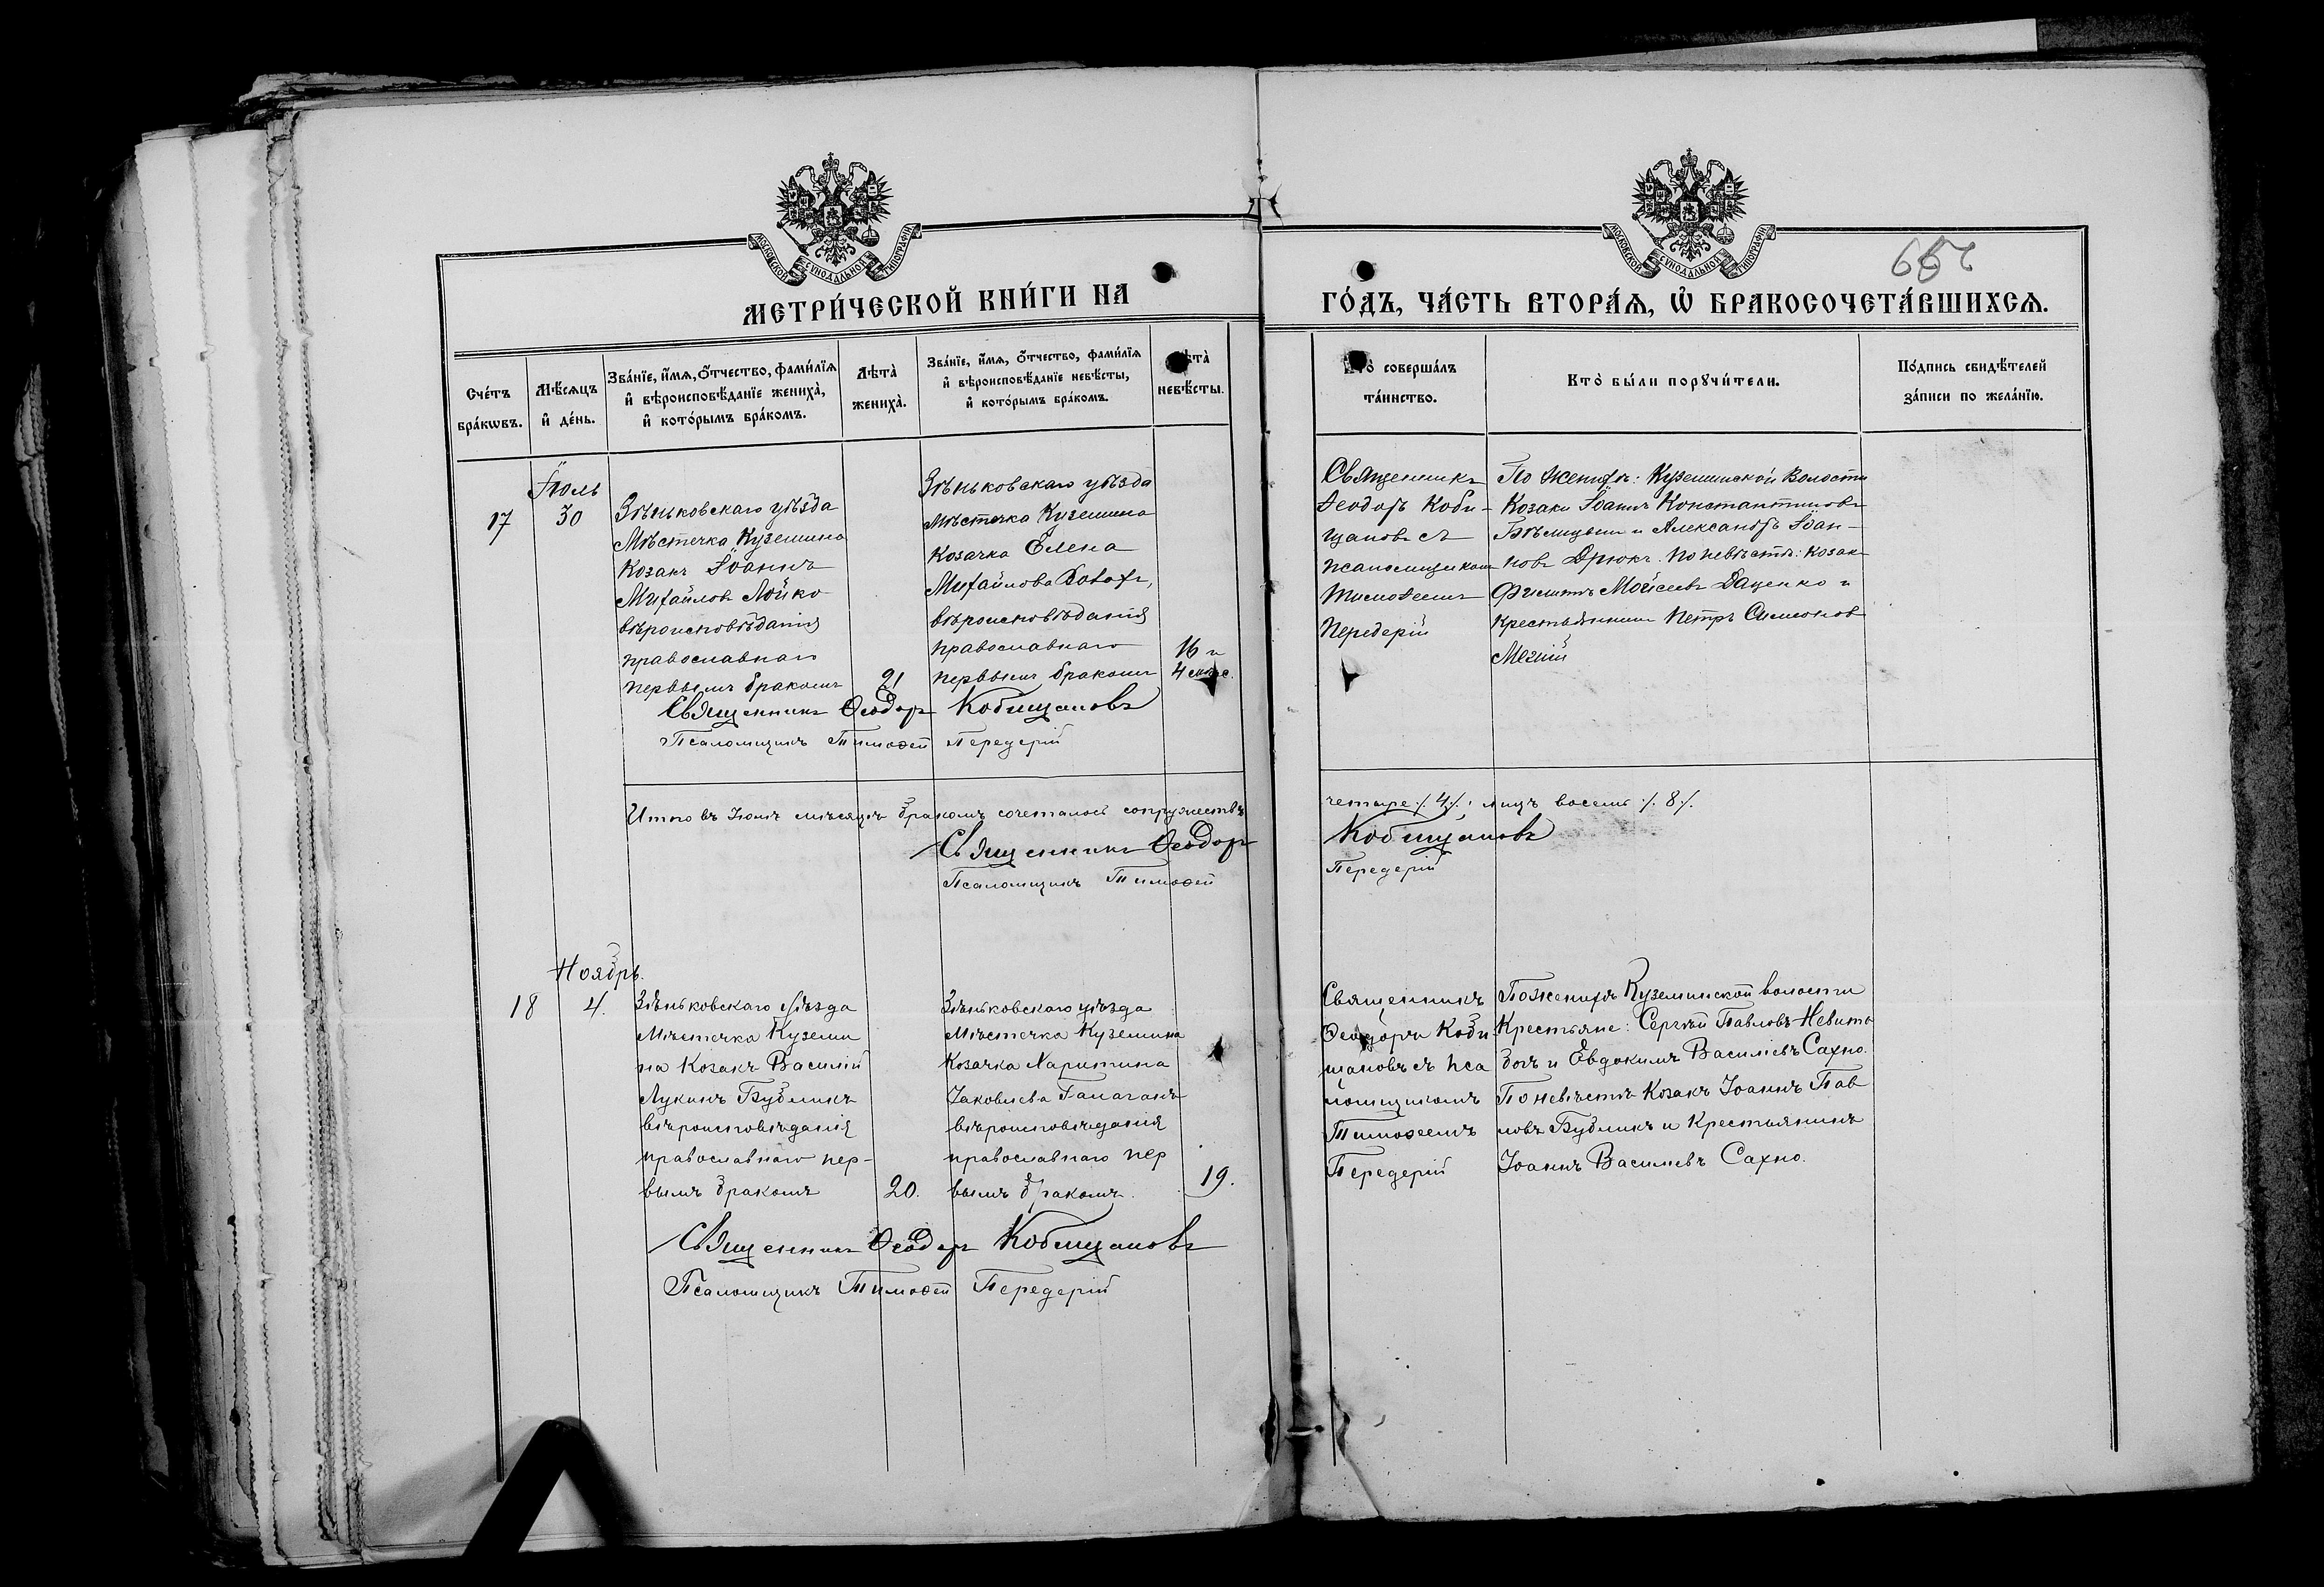 МОСКОВСКОЙ СѴНОДАЛЬНОЙ ТИПОГРАФІИ
МОСКОВСКОЙ СѴНОДАЛЬНОЙ ТИПОГРАФІИ
МЕТРИ́ЧЕСКОЙ КНИ́ГИ НА
ГО́ДЪ, ЧА́СТЬ ВТОРА́Ѧ, Ѡ҆ БРАКОСОЧЕТА́ВШИХСѦ.
Сче́тъ
бра́кѡвъ.
Мѣ́сѧцъ
и҆ де́нь.
Зва́нїе, и҆́мѧ, ѻ҆́тчество, фами́лїѧ
и҆ вѣроисповѣ́данїе жениха̀,
и҆ кото́рымъ бра́комъ.
Лѣта̀
жениха̀.
Зва́нїе, и҆́мѧ, ѻ҆́тчество, фами́лїѧ
и҆ вѣроисповѣ́данїе невѣ́сты,
и҆ кото́рымъ бра́комъ.
невѣ́сты.
соверша́лъ
та́инство.
Кто̀ бы́ли порꙋчи́тели.
По́дпись свидѣ́телей
за́писи по жела́нїю.
Іюль
17
30
Зѣньковскаго уѣзда
Мѣстечка Куземина
Козакъ Іоаннъ
Михайловъ Лойко
вѣроисповѣданія
православнаго
первымъ бракомъ
21
Зѣньковскаго уѣзда
Мѣстечка Куземина
Козачка Елена
Михайлова
вѣроисповѣданія
православнаго
первымъ бракомъ
16 и
4 мѣс.
Священникъ Ѳеодоръ Кобищановъ
Псаломщикъ Тимоѳей Передерій
Священникъ
Ѳеодоръ Коби-
щановъ съ
псаломщикомъ
Тимоѳеемъ
Передерій
По женихѣ: Куземинской Волости
Козаки Іоаннъ Константиновъ
и Александръ Іоан-
новъ Дрюкъ. По невѣстѣ: козакъ
Моисеевъ Даценко и
крестьянинъ Петръ Симеоновъ
Мезій
Итого въ Іюлѣ мѣсяцѣ бракомъ сочеталось супружествъ
четыре ./. 4 ./. ; лицъ восемь ./. 8 ./.
Священникъ Ѳеодоръ Кобищановъ
Псаломщикъ Тимоѳей Передерій
Ноябрь.
18
4.
Зѣньковскаго уѣзда
Мѣстечка Куземи
на Козакъ Василій
Лукинъ Бубликъ
вѣроисповѣданія
православнаго пер-
вымъ бракомъ
20.
Зѣньковскаго уѣзда
Мѣстечка Куземина
Козачка Харитина
Іаковлева Галаганъ
вѣроисповѣданія
православнаго пер
вымъ бракомъ.
19.
Священникъ
Ѳеодоръ Коби-
щановъ съ пса
ломщикомъ
Тимоѳеемъ
Передерій
По женихѣ Куземинской волости
Крестьяне: Сергѣй Павловъ
и Евдокимъ Василіевъ Сахно.
По невѣстѣ Козакъ Іоаннъ Пав
ловъ Бубликъ и Крестьянинъ
Іоаннъ Василіевъ Сахно.
Священникъ Ѳеодоръ Кобищановъ
Псаломщикъ Тимоѳей Передерій